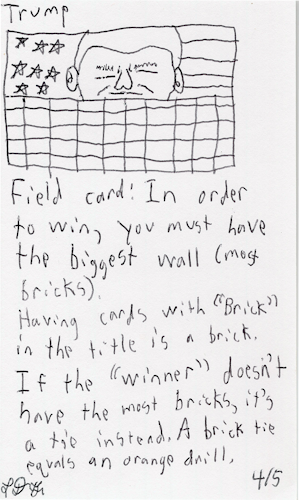 Trump
Field card: In order
to win, you must have
the biggest wall (most
bricks).
Having cards with "Brick"
in the title is a brick.
If the "winner" doesn't
have the most bricks, it's
a tie instead. A brick tie
equals an orange drill.
4/5